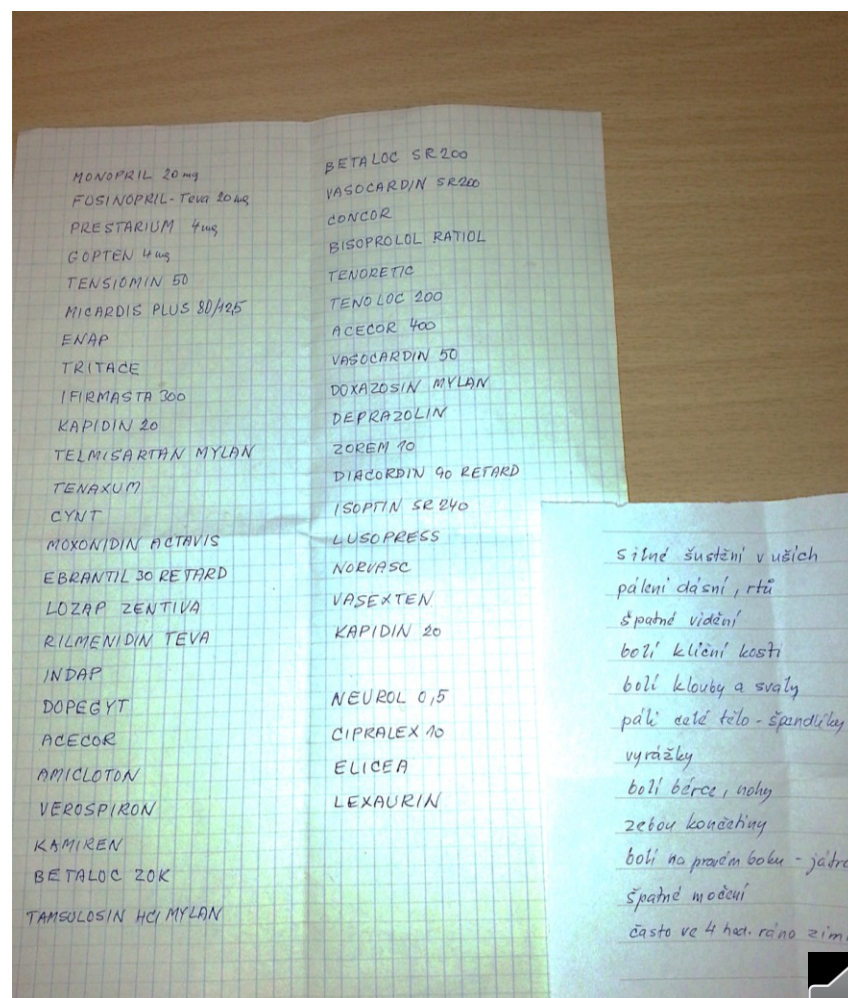 MONOPRIL 20 mg
FOSINOPRIL - Teva 20 mg
PRESTARIUM 4 mg
GOPTEN 4 mg
TENSIOMIN 50
MICARDIS PLUS 80/12,5
ENAP
TRITACE
IFIRMASTA 300
KAPIDIN 20
TELMISARTAN MYLAN
TENAXUM
CYNT
MOXONIDIN ACTAVIS
EBRANTIL 30 RETARD
LOZAP ZENTIVA
RILMENIDIN TEVA
INDAP
DOPEGYT
ACECOR
AMICLOTON
VEROSPIRON
KAMIREN
BETALOC ZOK
TAMSULOSIN HCl MYLAN
BETALOC SR 200
VASOCARDIN SR200
CONCOR
BISOPROLOL RATIOL
TENORETIC
TENOLOC 200
ACECOR 400
VASOCARDIN 50
DOXAZOSIN MYLAN
DEPRAZOLIN
ZOREM 10
DIACORDIN 90 RETARD
ISOPTIN SR 240
LUSOPRESS
NORVASC
VASEXTEN
KAPIDIN 20
NEUROL 0,5
CIPRALEX 10
ELICEA
LEXAURIN
silné šustění v uších
pálení dásní, rtů
špatné vidění
bolí klíční kosti
bolí klouby a svaly
pálí celé tělo - špendlíky
vyrážky
bolí bérce, nohy
zebou končetiny
bolí na pravém boku - játra
špatné močení
často ve 4 hod. ráno